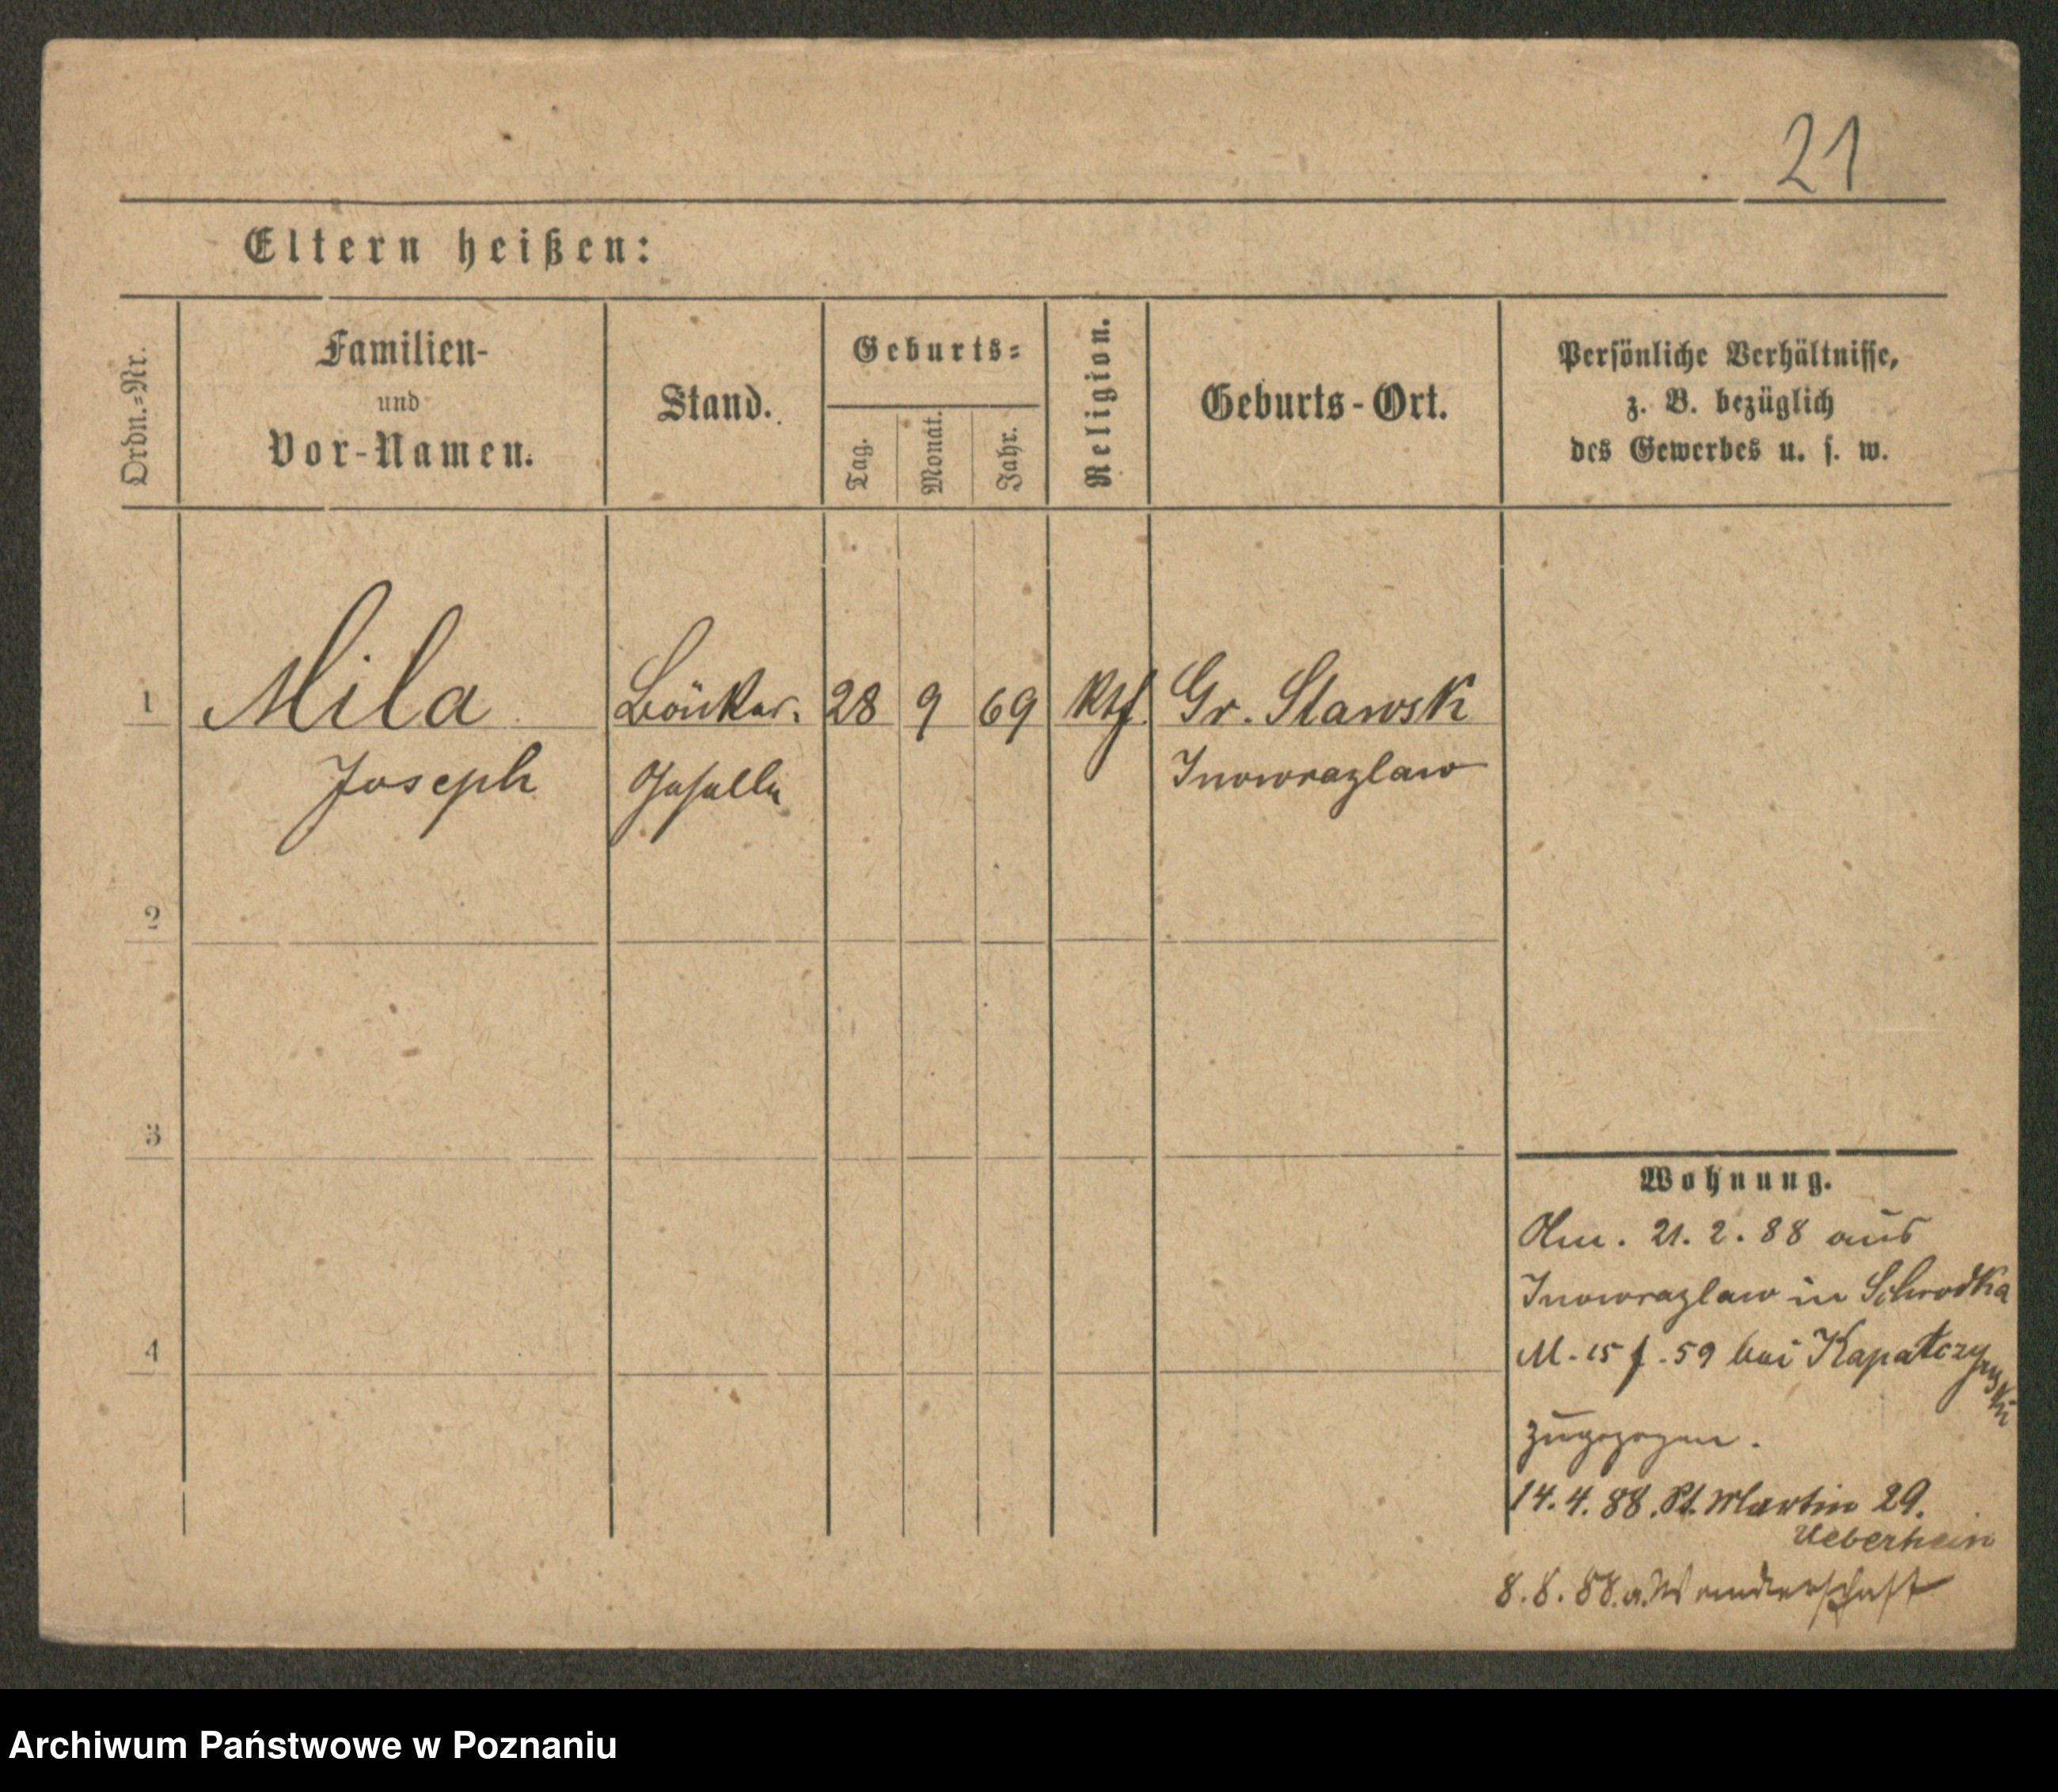 21
Eltern heißen:
Ordn.-Nr.
Familien-
und
Vor-Namen.
Stand.
Geburts-
Tag.
Monat.
Jahr.
Religion.
Geburts-Ort.
Persönliche Verhältnisse,
z. B. bezüglich
des Gewerbes u. s. w.
1 Mila Bäcker. 28 9 69 Kth. Gr. Slawsk
Joseph Geselle Inowrazlaw
2
3
4
Wohnung.
21. 2. 88 aus
Inowrazlaw in Schrodka
M. 15 f. 59 bei Kapałczynski
zugezogen.
14. 4. 88. St. Martin 29.
Ueberhein
8. 8. 88. a. Wanderschaft
Archiwum Państwowe w Poznaniu